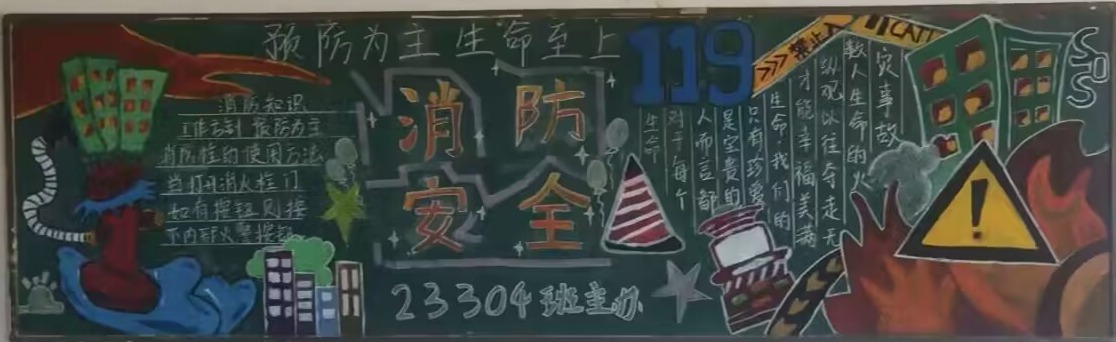 预防为主生命至上
消防
安全
119
禁止入
CALL
SOS
消防知识
工作方针 预防为主
消防栓的使用方法
当打开消火栓门
如有按钮则按
下内部火警按钮
灾事故
数人生命的火
纵观以往夺走无
才能幸福美满
生命,我们的
只有珍爱
是宝贵的
人而言都
对于每个
生命
23304班主办